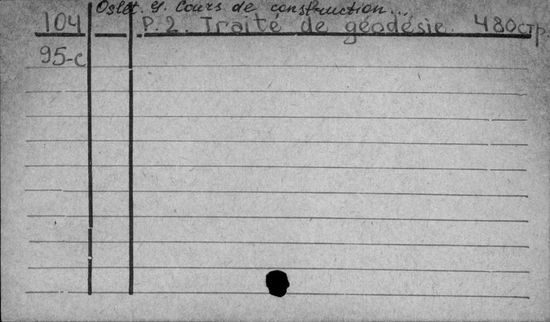 Oslet. G. Cours de construction...
104 P. 2. Traité de géodésie. 480стр.
95-c